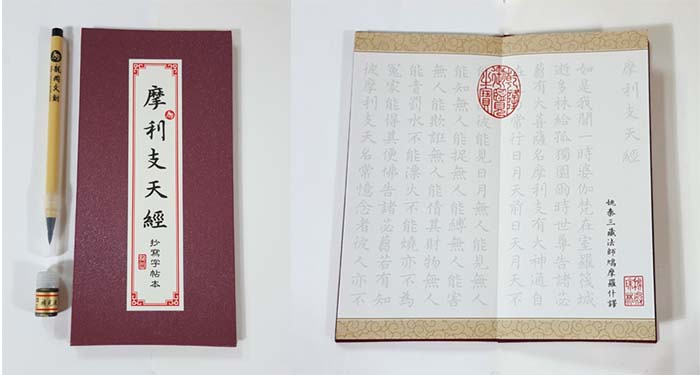 摩利支天經
抄寫字帖本
摩利支天經
姚秦三藏法師鳩摩羅什譯
如是我聞一時婆伽梵在室羅筏城
逝多林給孤獨園爾時世尊告諸苾
蒭有大菩薩名摩利支有大神通自
在常行日月天前日天月天不
彼能見日月無人能見無人
能知無人能捉無人能縛無人能害
無人能欺誑無人能債其財物無人
能責罰水不能漂火不能燒亦不為
冤家能得其便佛告諸苾蒭若有知
彼摩利支天名常憶念者彼人亦不